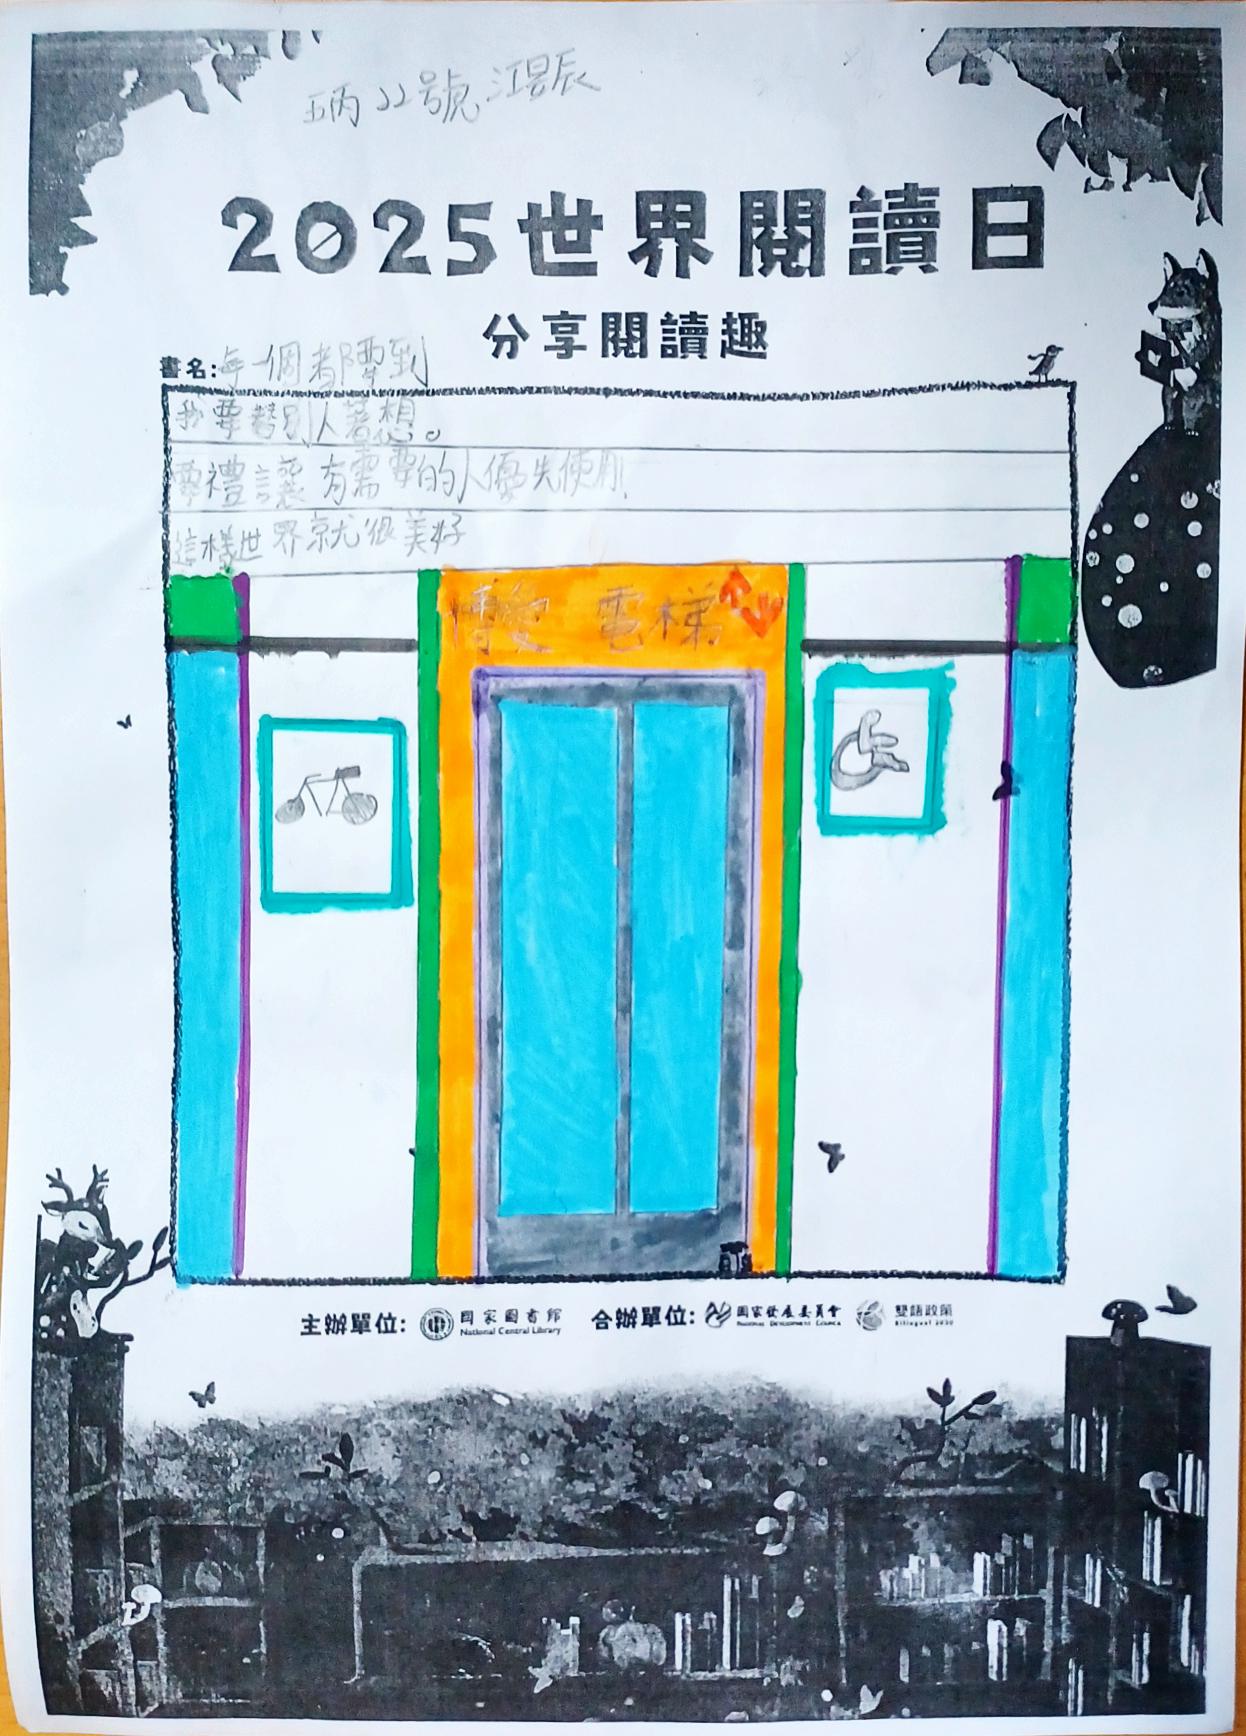 五丙22號 江昱辰
2025世界閱讀日
分享閱讀趣
書名:每一個都要到
我要替別人著想。
要禮讓有需要的人優先使用
這樣世界就很美好
博愛 電梯
主辦單位: 國家圖書館 National Central Library 合辦單位: 國家發展委員會 National Development Council 雙語政策 Bilingual 2030